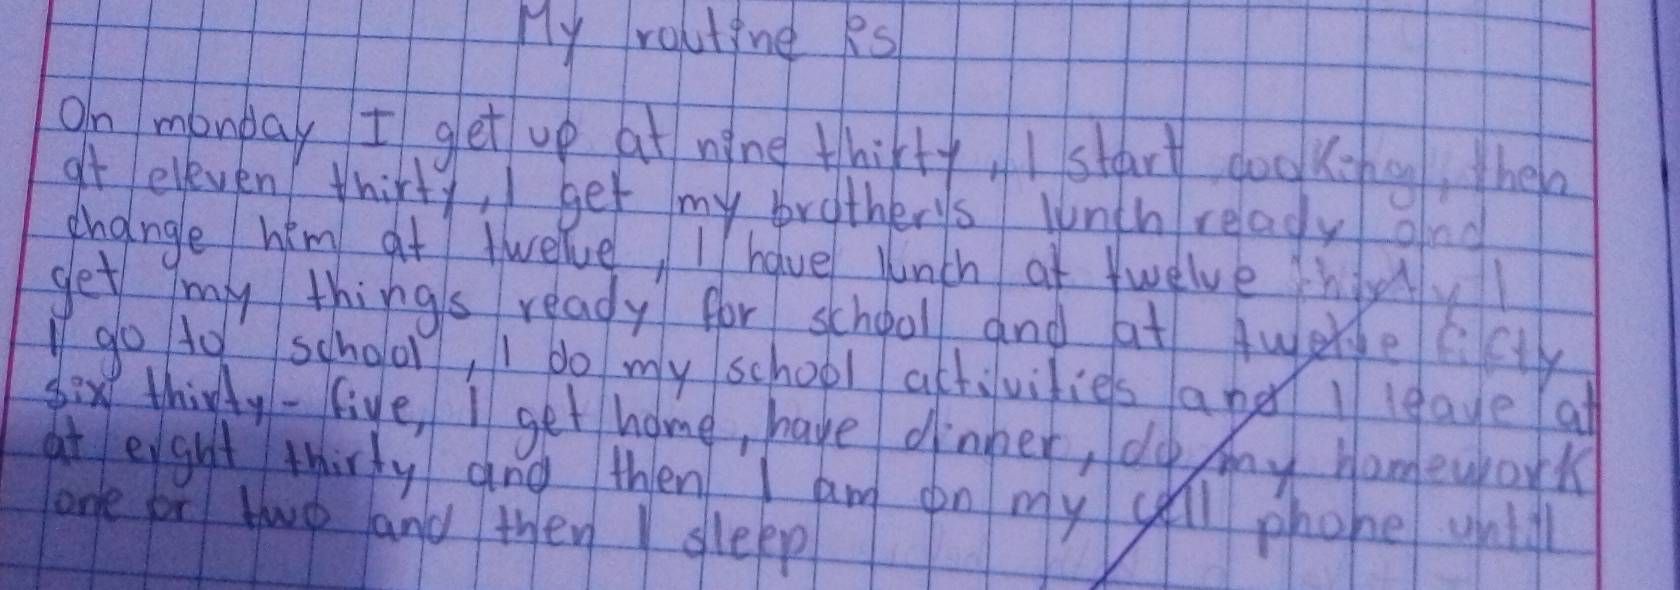 My routine is
On monday I get up at nine thirty, I start cooking, then
at eleven thirty, I get my brother's lunch ready and
change him at twelve, I have lunch at twelve thirty I
get my things ready for school and at twelve ficty
I go to school, I do my school activities and I leave at
six thirty-five, I get home, have dinner, do my homework
at eight thirty and then I am on my cell phone until
one or two and then I sleep